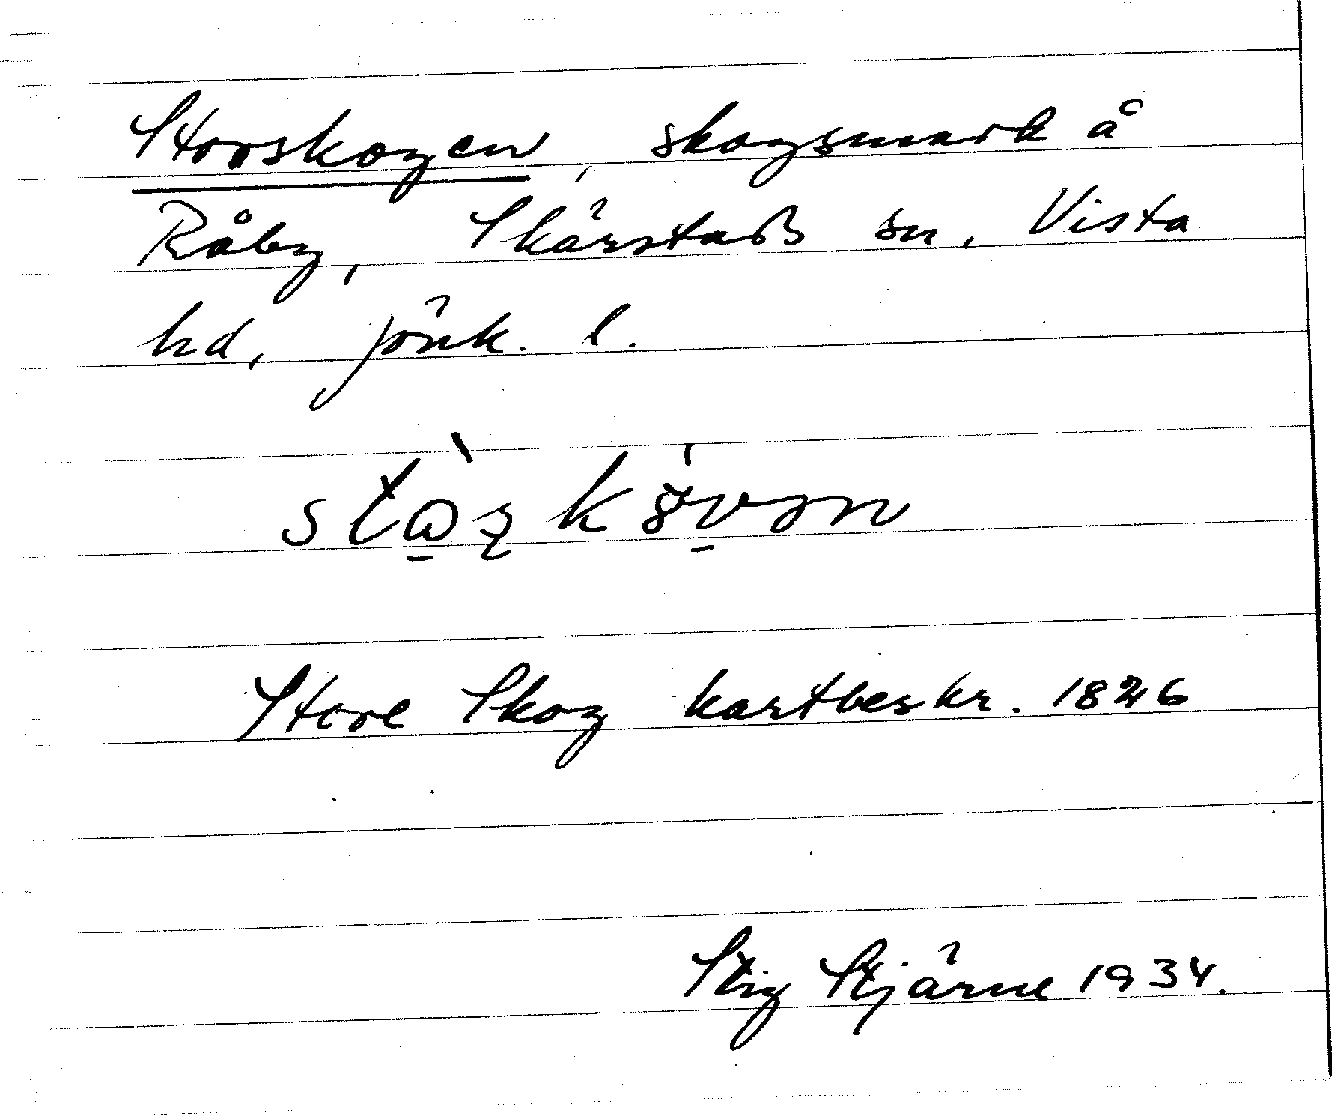 Storskogen, skogsmark å
Råby, Skärstads sn, Vista
hd, Jönk. l.
Store Skog kartbeskr. 1826
Stig Stjärne 1934.